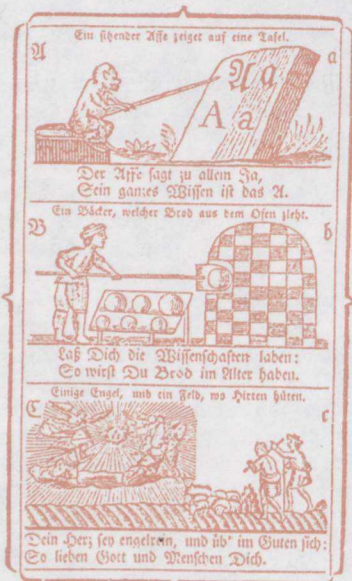 Ein sitzender Affe zeiget auf eine Tafel.
A a
A a
A a
Der Affe sagt zu allem Ja,
Sein ganzes Wissen ist das A.
Ein Bäcker, welcher Brod aus dem Ofen zieht.
B b
Laß Dich die Wissenschaften laben:
So wirst Du Brod im Alter haben.
Einige Engel, und ein Feld, wo Hirten hüten.
C c
Dein Herz sey engelrein, und üb' im Guten sich:
So lieben Gott und Menschen Dich.